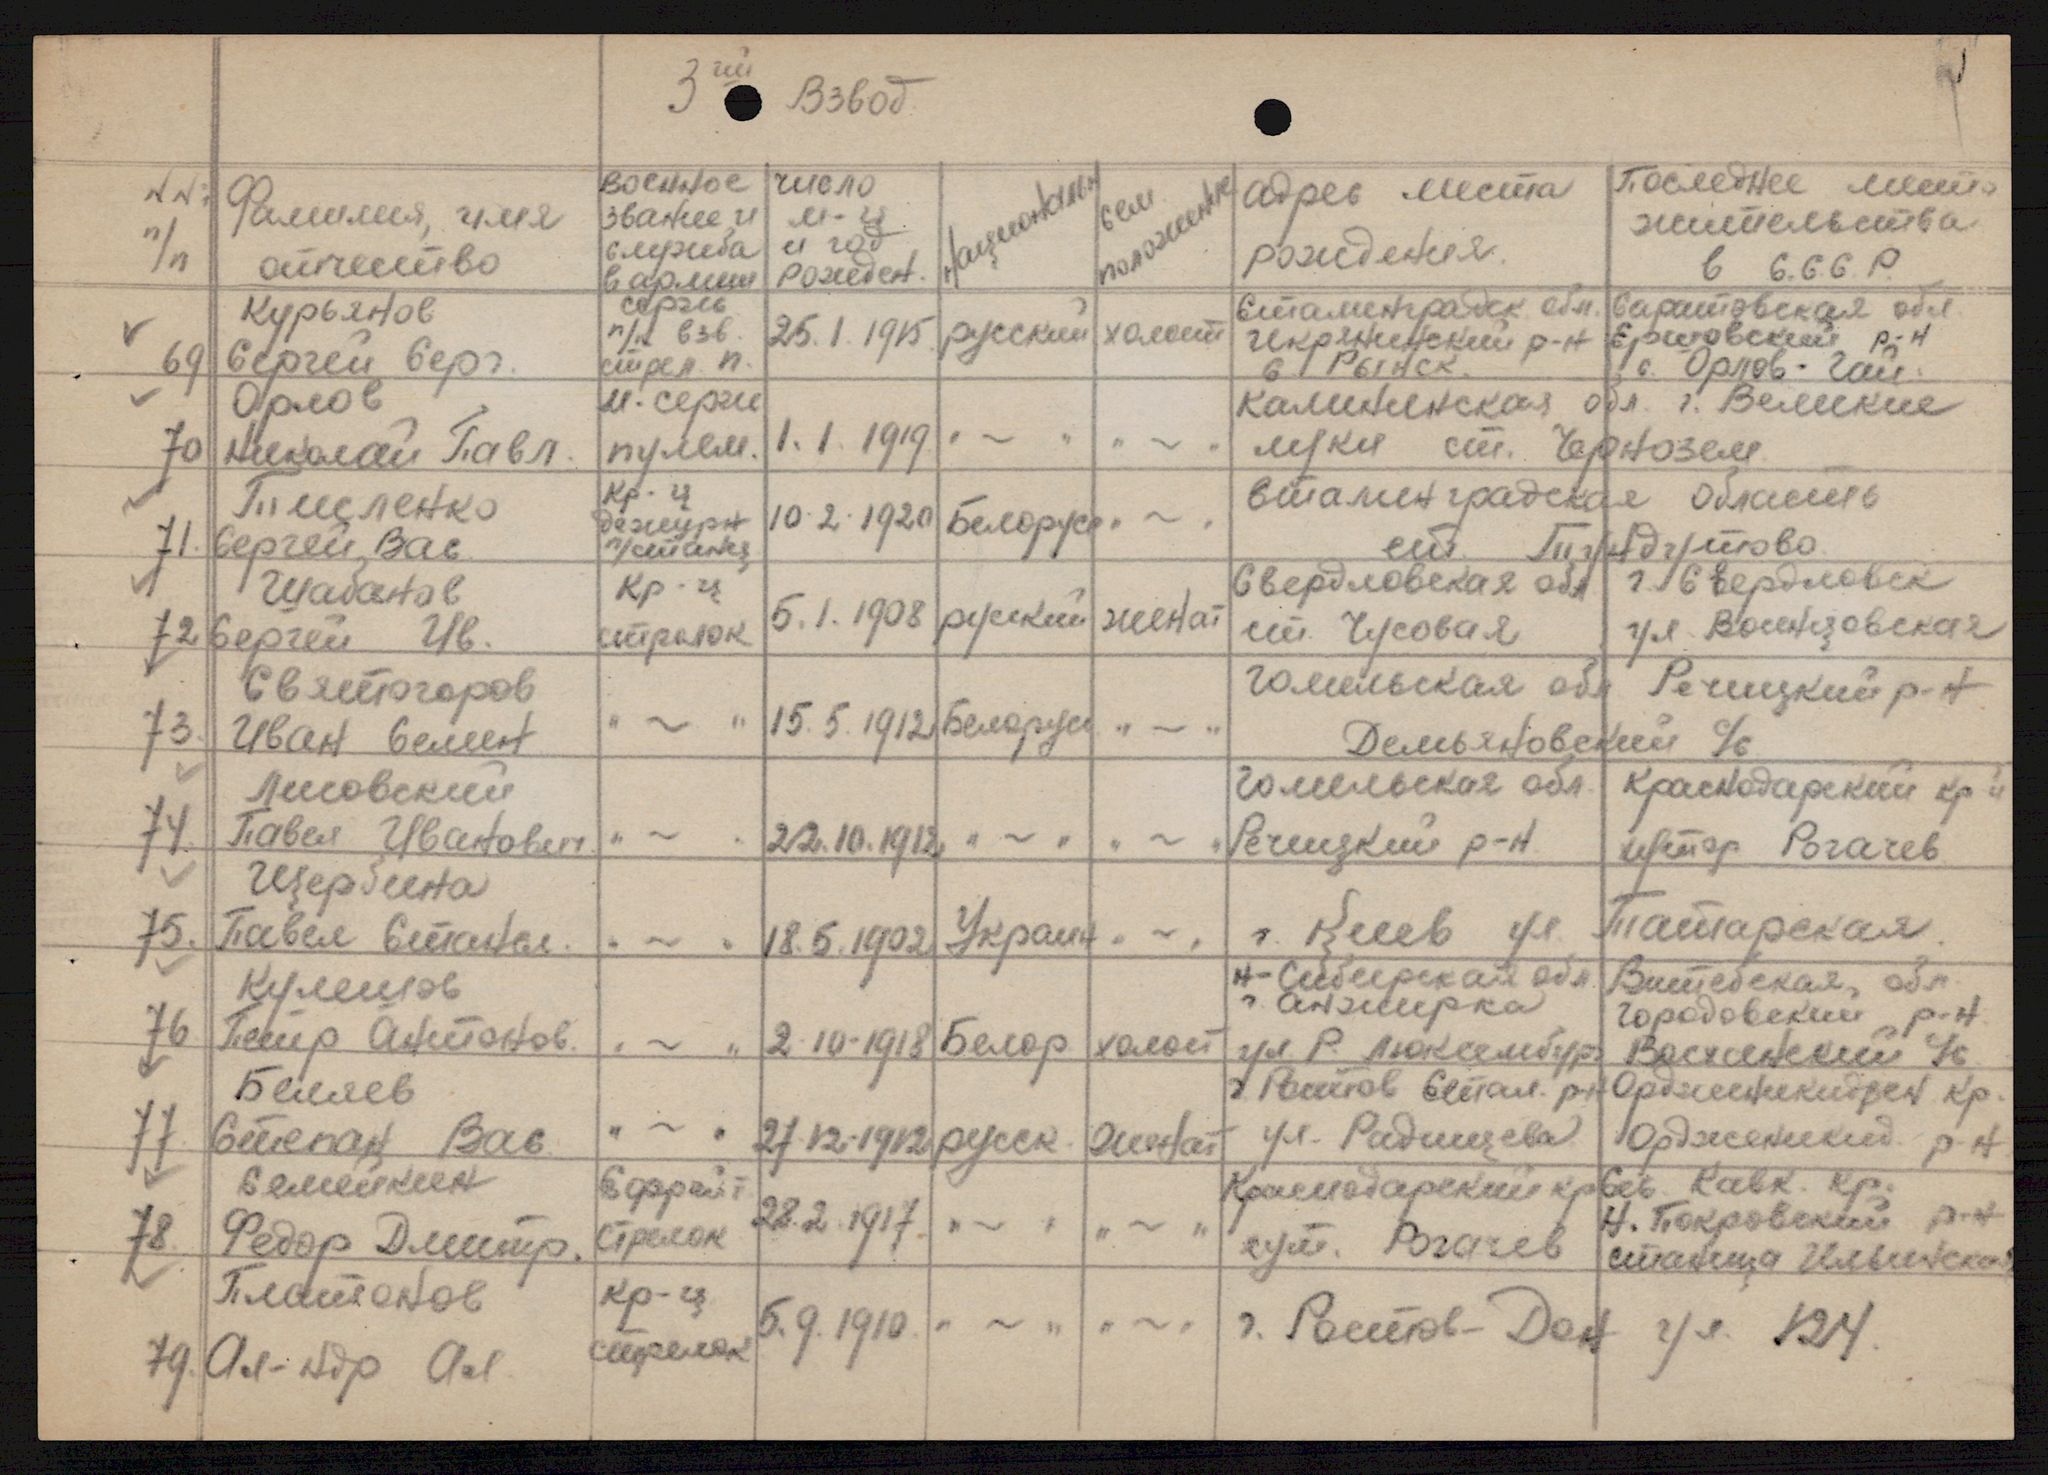 3ий Взвод
NN: п/п
Фамилия, имя
отчество
военное
звание и
служба
в армии
число
м-ц
и год
рожден.
национальн
сем.
положение
адрес места
рождения.
Последнее место
жительства
в С.С.С.Р.
Курьянов
69 Сергей Серг.
сержь
п/к взв.
стрел. п.
25.1.1915 русский холост
Сталинградск. обл.
Икрянинский р-н
с. Рынск.
Саратовская обл.
Ершовский р-н
с. Орлов-Гай.
Орлов
70 Николай Павл.
м-серж
пулем.
1.1.1919 "~" "~"
Калининская обл. г. Великие
луки ст. Чернозем
Тисленко
71. Сергей Вас
Кр-ц
дежурн
п/станц
10.2.1920 Белорусс "~"
Сталинградская область
ст. Тундутово
Шабанов
72 Сергей Ив.
Кр-ц
стрелок
5.1.1908 русский женат
Свердловская обл г. Свердловск
ст. Чусовая ул. Воинцовская
Святогоров
73. Иван Семен
"~" 15.5.1912 Белорус "~"
Гомельская обл Речицкий р-н
Демьяновский с/с
Лисовский
74. Павел Иванович
"~" 22.10.1912 "~" "~"
Гомельская обл. Краснодарский кр й
Речицкий р-н хутор Рогачев
Щербина
75. Павел Стансл.
"~" 18.5.1902 Украин "~"
г. Киев ул. Татарская.
Кулешов
76 Петр Антонов.
"~" 2-10-1918 Белор холост
Н-Сибирская обл.
г. Анжирка
ул Р. Люксембург
Витебская обл
Городовский р-н
с/с
Беляев
77. Степан Вас
"~" 27.12.1912 русск. женат
г. Ростов Стал. р-н Орджиникидзен кр.
ул. Радищева Орджоникид р-н
Семейкин
78. Федор Дмитр.
Ефрейт
Стрелок
28.2.1917 "~" "~"
Краснодарский кр
хут. Рогачев
Сев. Кавк. кр.
Н. Покровский р-н
станица Ильинская
Платонов
79. Ал-ндр Ал
Кр-ц
стрелок
5.9.1910. "~" "~"
г. Ростов-Дон ул. 124.